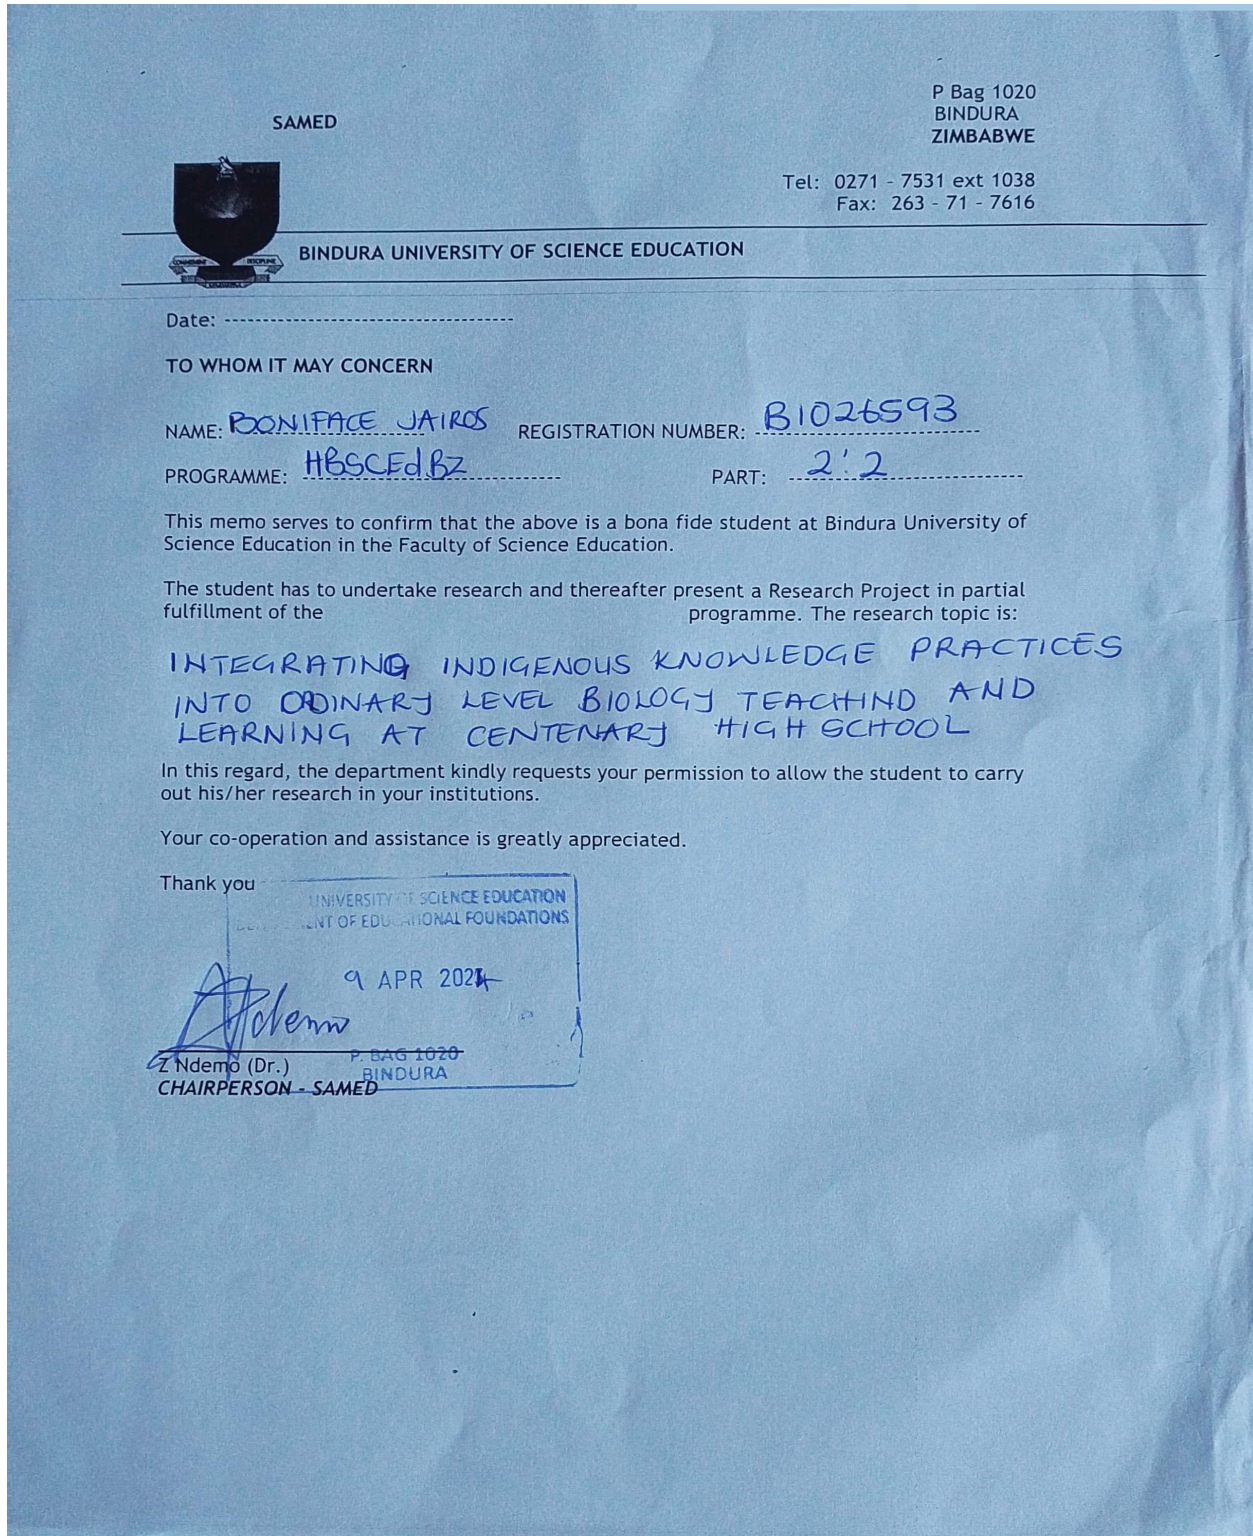 SAMED
P Bag 1020
BINDURA
ZIMBABWE
Tel: 0271 - 7531 ext 1038
Fax: 263 - 71 - 7616
BINDURA UNIVERSITY OF SCIENCE EDUCATION
Date: -------------------------------------
TO WHOM IT MAY CONCERN
NAME: BONIFACE JAIROS REGISTRATION NUMBER: B1026593
PROGRAMME: HBSCEdBZ PART: 2.2
This memo serves to confirm that the above is a bona fide student at Bindura University of
Science Education in the Faculty of Science Education.
The student has to undertake research and thereafter present a Research Project in partial
fulfillment of the programme. The research topic is:
INTEGRATING INDIGENOUS KNOWLEDGE PRACTICES
INTO ORDINARY LEVEL BIOLOGY TEACHIND AND
LEARNING AT CENTENARY HIGH SCHOOL
In this regard, the department kindly requests your permission to allow the student to carry
out his/her research in your institutions.
Your co-operation and assistance is greatly appreciated.
Thank you
UNIVERSITY OF SCIENCE EDUCATION
OF EDUCATIONAL FOUNDATIONS
9 APR 2024
Ndemo
P. BAG 1020
Z Ndemo (Dr.)
BINDURA
CHAIRPERSON - SAMED